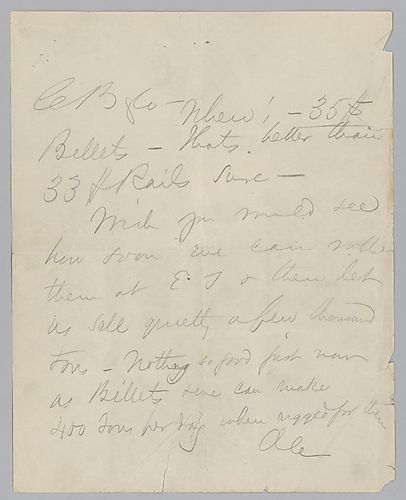 C B & Co — Whew! — 35 $
Billets — Thats better than
33 $ Rails sure —
Wish you would see
how soon we can roll
them at E. T & then let
us sell quietly a few thousand
tons — Nothing so good just now
as Billets we can make
400 tons per day when rigged for them
AC